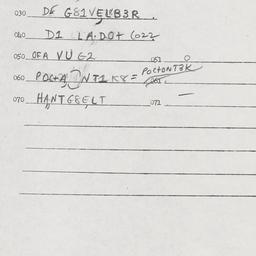 030 DE G81VELB3R .
040 D1 LA.DOT (022
050 OFA VU G2 051 0
060 POCTA NT1 K8 = POCTONT3K
070 HANTG8ELT 071 —